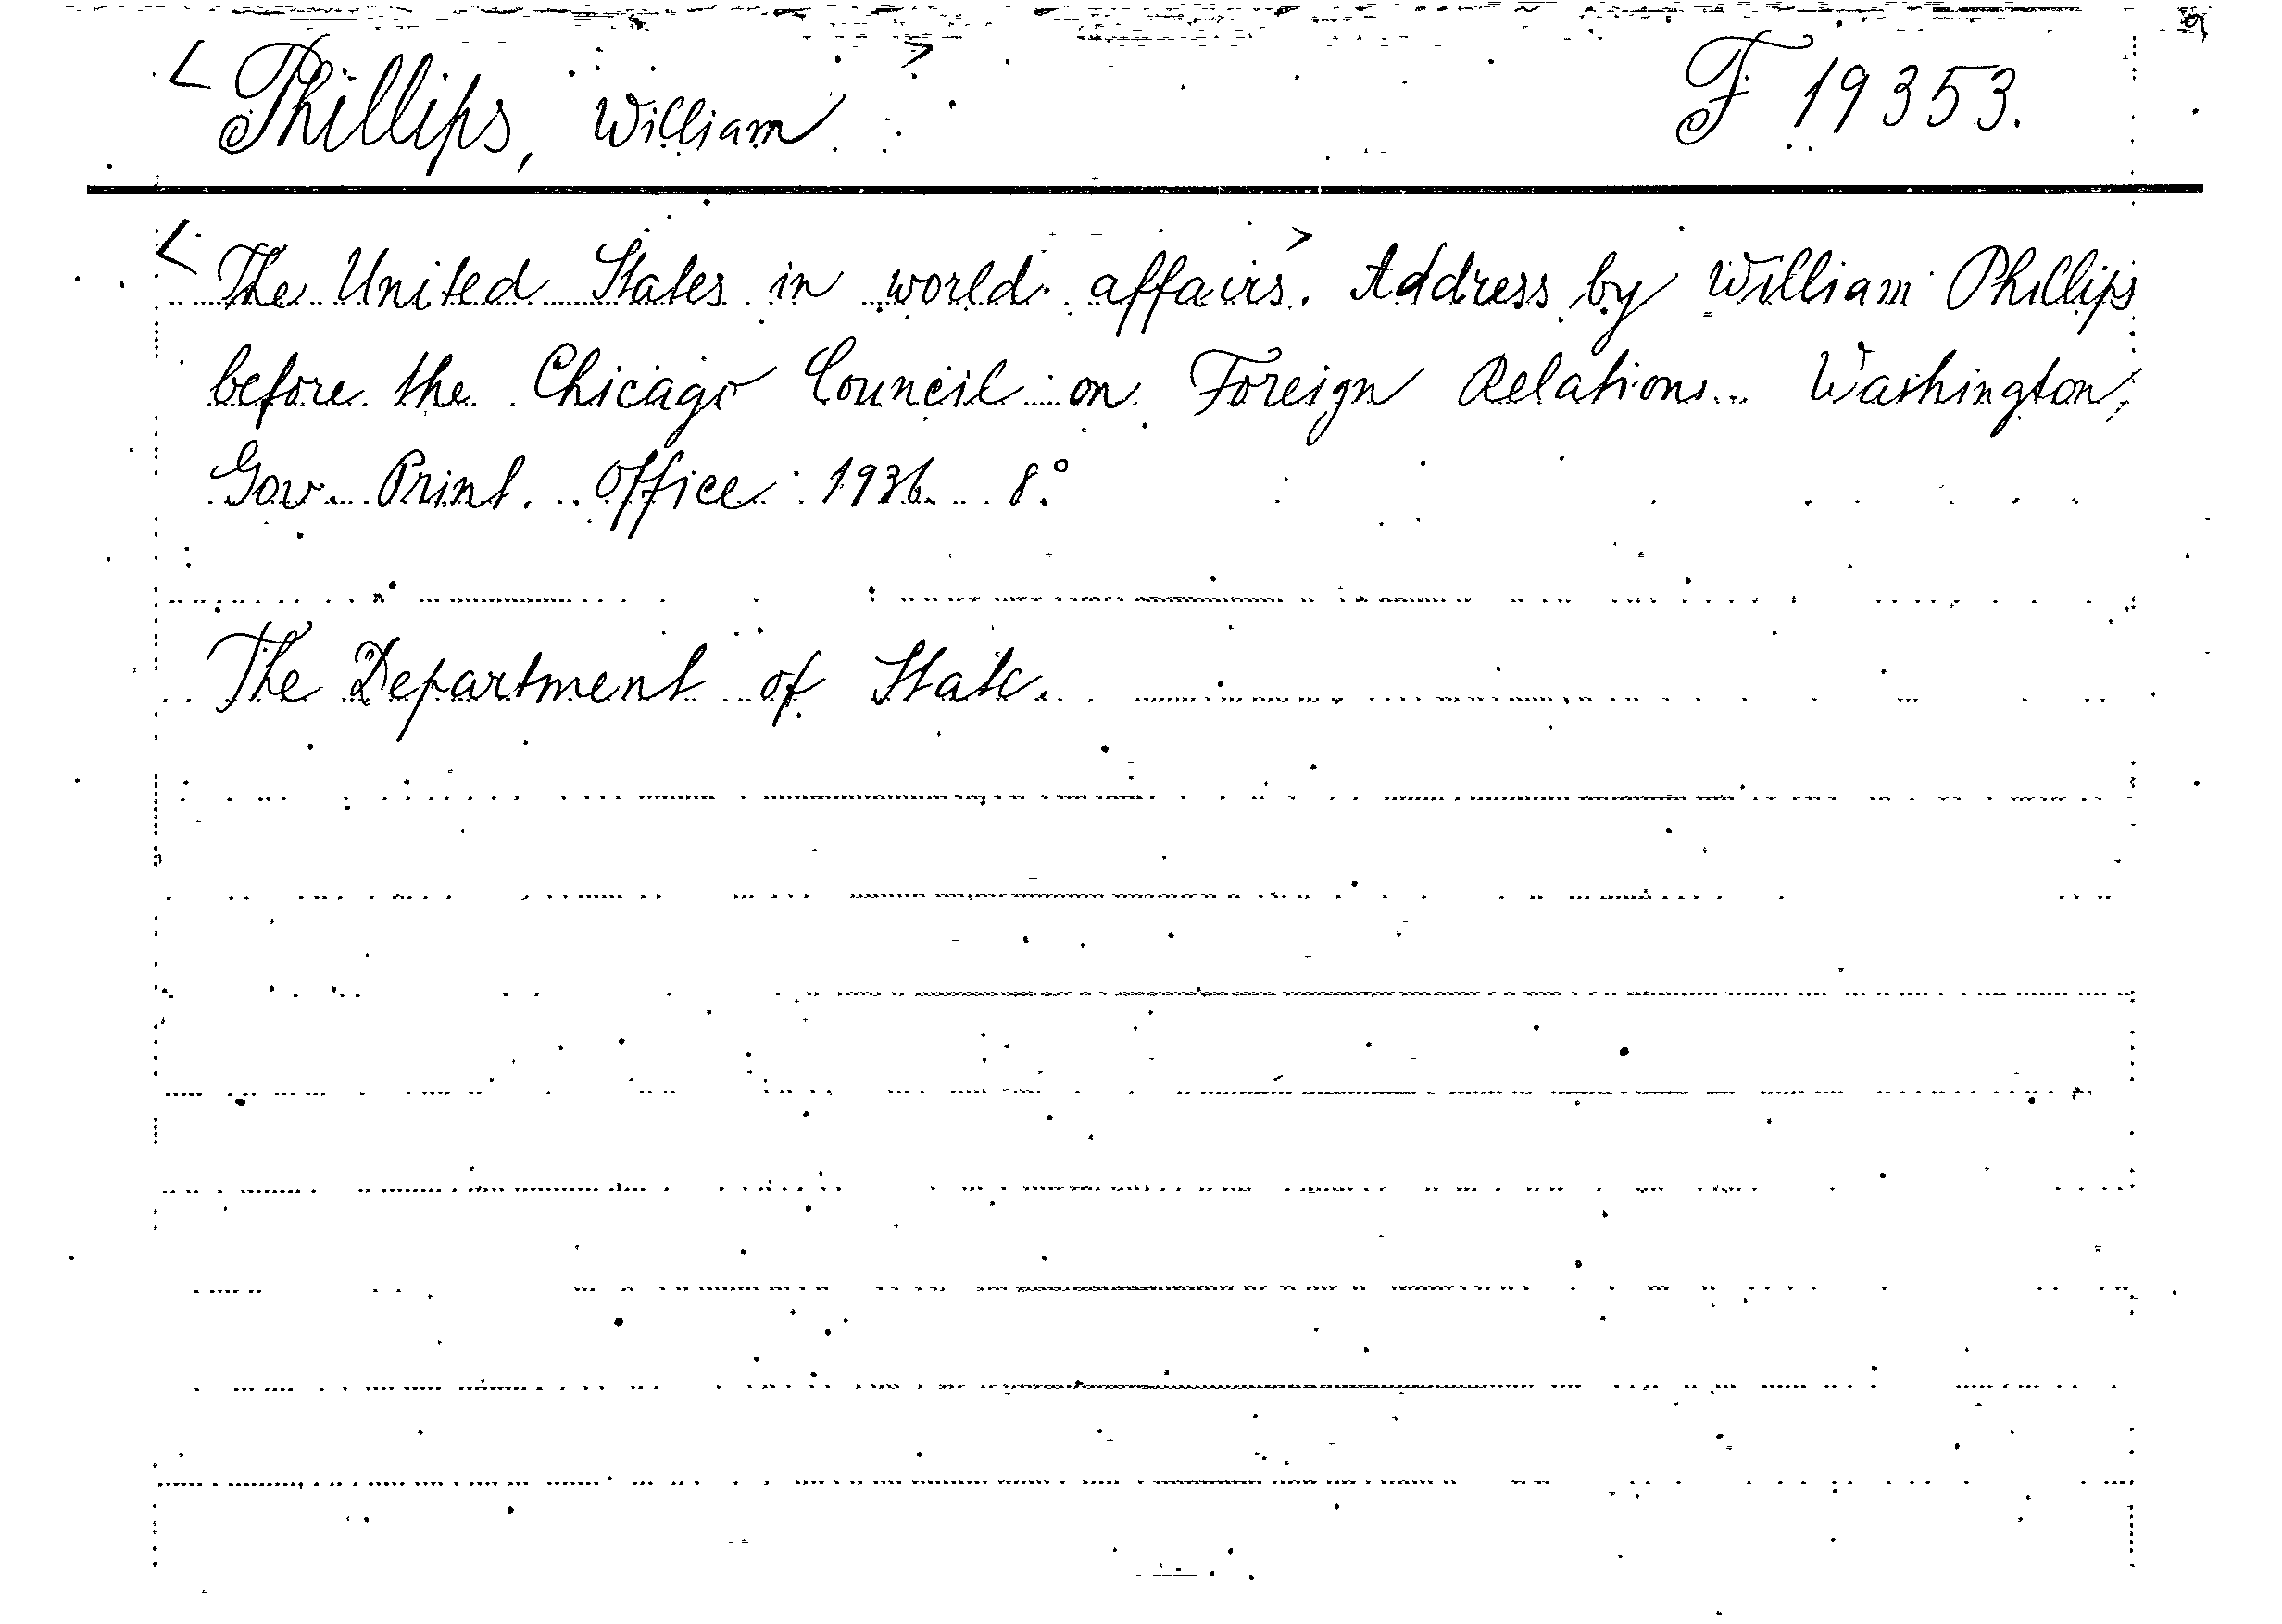 < Phillips, William > F 19353.
< The United States in world affairs. > Address by William Phillips
before the Chicago Council on Foreign Relations... Washington,
Gov. Print. Office 1936. 8°
The Department of State.